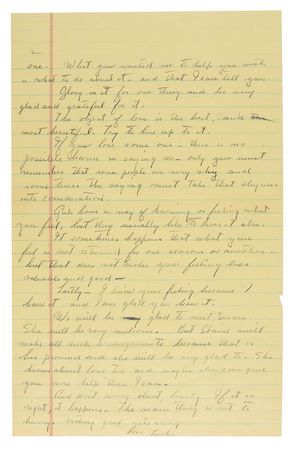 2
one. What you wanted me to help you with
is what to do about it - and that I can tell you.
Glory in it for one thing and be very
glad and grateful for it.
The object of love is the best and the
most beautiful. Try to live up to it.
If you love some one - there is no
possible harm in saying so - only you must
remember that some people are very shy and
sometimes the saying must take that shyness
into consideration.
Girls have a way of knowing or feeling what
you feel, but they usually like to hear it also.
It sometimes happens that what you
feel is not returned for one reason or another -
but that does not make your feeling less
valuable and good -
Lastly - I know your feeling because I
have it and I am glad you have it.
We will be glad to meet Susan.
She will be very welcome. But Elaine will
make all such arrangements because that is
her province and she will be very glad to. She
knows about love too and maybe she can give
you more help than I can.
And don't worry about losing. If it is
right, it happens - The main thing is not to
hurry. Nothing good gets away.
Love